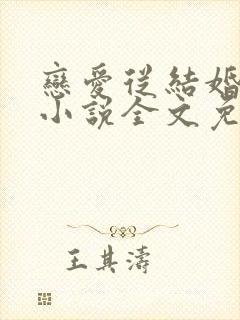 戀愛從結婚
小說全文免
王其濤